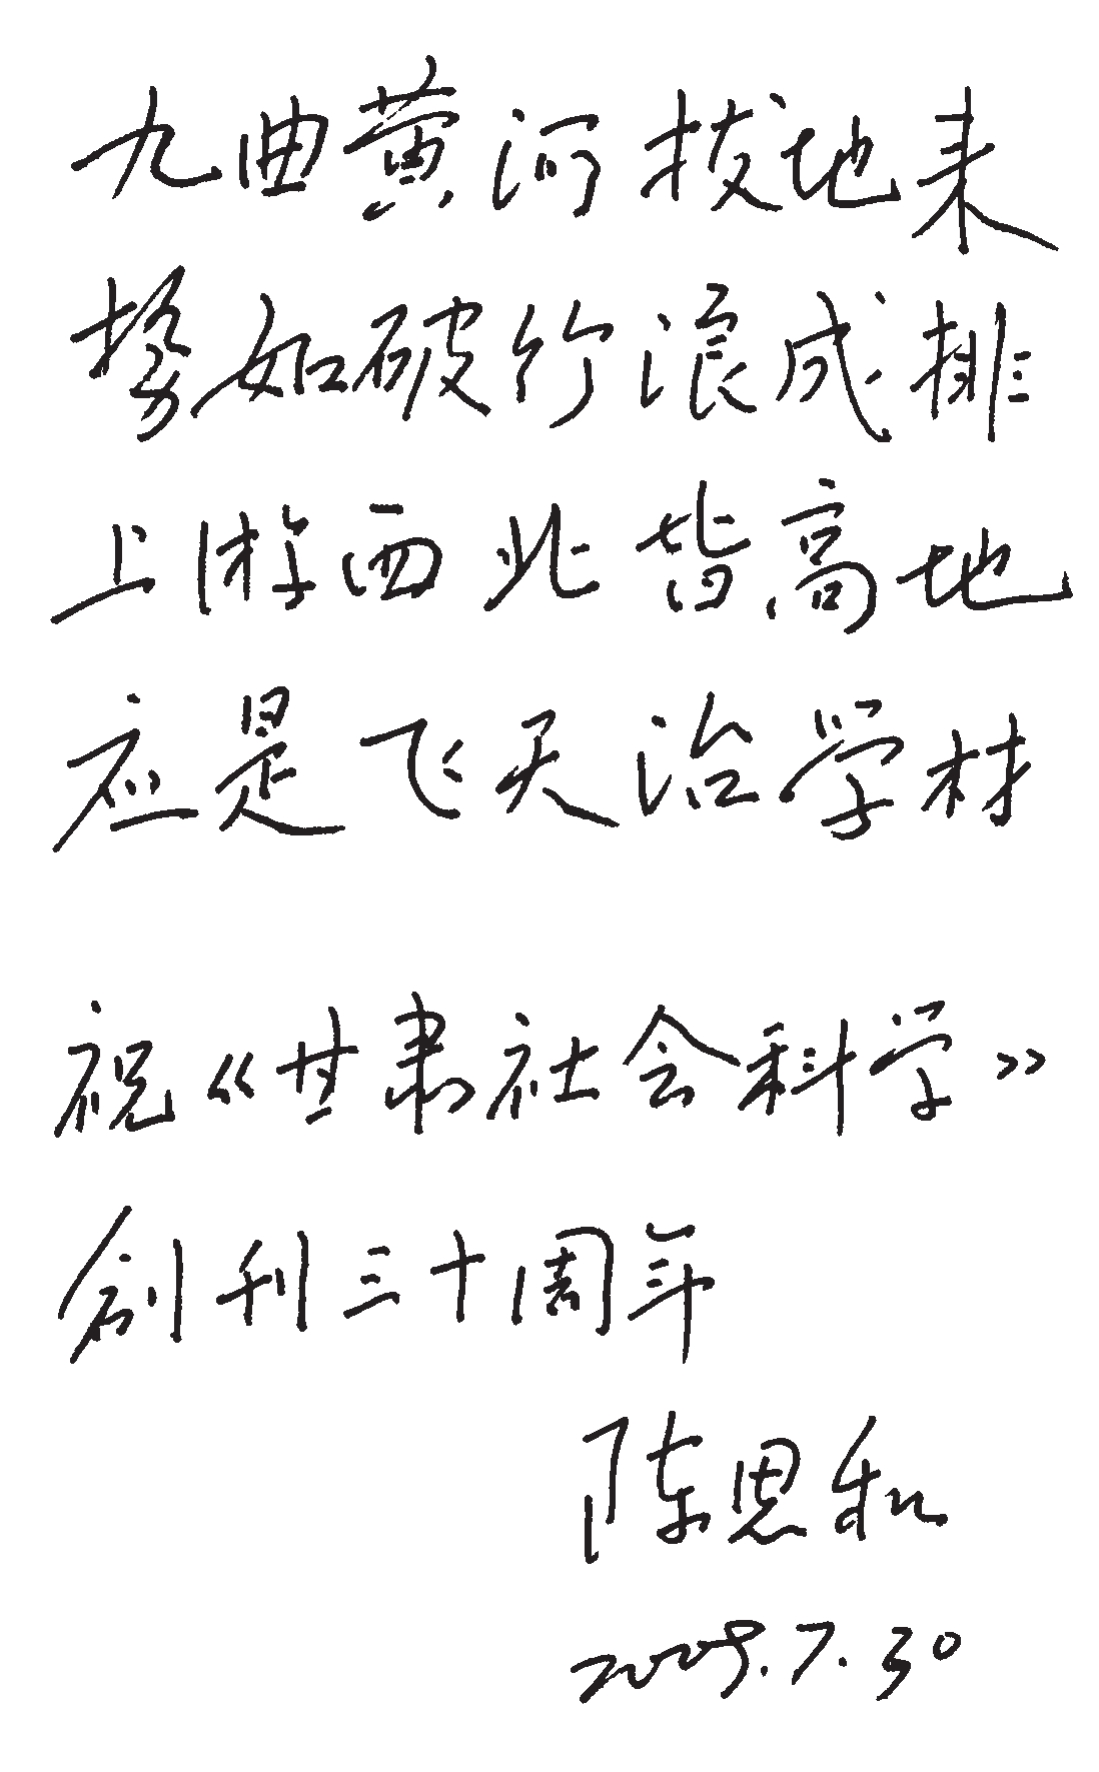 九曲黄河拔地来
势如破竹浪成排
上游西北皆高地
应是飞天治学材
祝《甘肃社会科学》
创刊三十周年
陈思和
2009.7.30